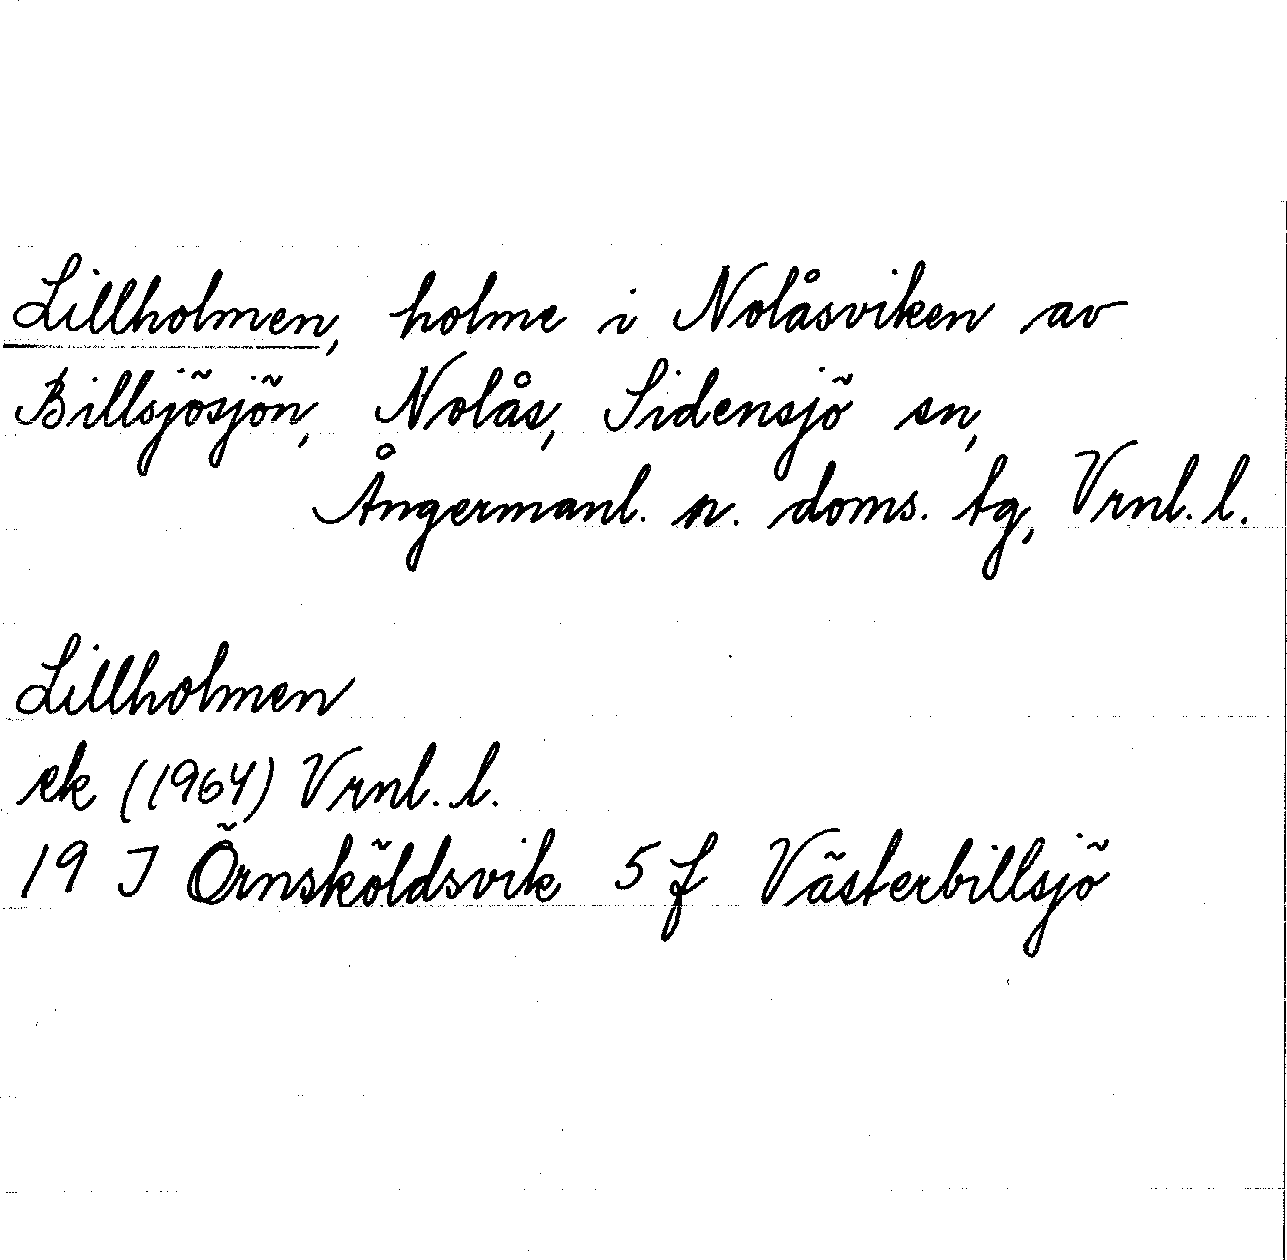 Lillholmen, holme i Nolåsviken av
Billsjösjön, Nolås, Sidensjö sn,
Ångermanl. n. doms. tg, Vrnl. l.
Lillholmen
ek (1964) Vrnl. l.
19 J Örnsköldsvik 5 f Västerbillsjö